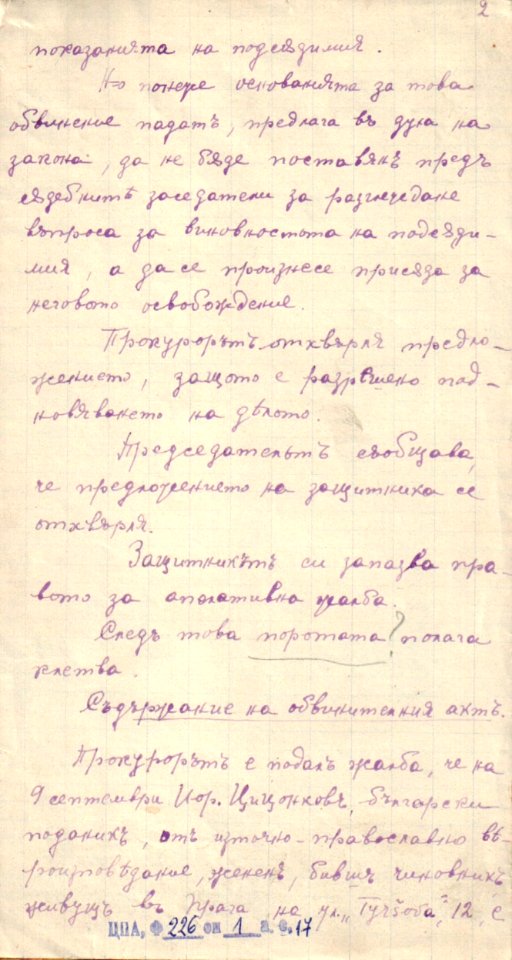 2
показанията на подсѫдимия.
Но понеже основанията за това
обвинение падатъ, предлага въ духа на
закона, да не бѫде поставянъ предъ
сѫдебнитѣ заседатели за разглеждане
въпроса за виновностьта на подсѫди-
мия, а да се произнесе присѫда за
неговото освобождение.
Прокурорътъ отхвърля предло-
жението, защото е разрѣшено под-
новяването на дѣлото.
Председательтъ съобщава,
че предложението на защитника се
отхвърля.
Защитникътъ си запазва пра-
вото за апелативна жалба.
Следъ това поротата? полага
клетва.
Съдържание на обвинителния актъ.
Прокурорътъ е подалъ жалба, че на
9 септември Иор. Цицонковъ, български
поданикъ, отъ източно-православно вѣ-
роизповѣдание, жененъ, бившъ чиновникъ
живущъ въ Прага, на ул. „Tyršova" 12, е
ЦПА, ф 226 оп 1 а. е. 17